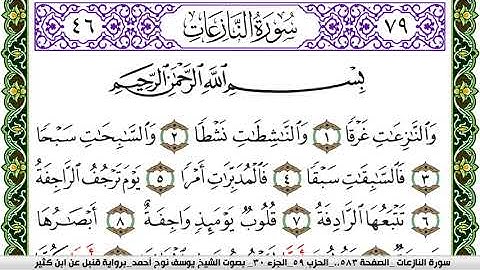 ٧٩ سُورَةُ النَّازِعَاتِ ٤٦
بِسْمِ اللَّهِ الرَّحْمَٰنِ الرَّحِيمِ
وَالنَّازِعَاتِ غَرْقًا ١ وَالنَّاشِطَاتِ نَشْطًا ٢ وَالسَّابِحَاتِ سَبْحًا
٣ فَالسَّابِقَاتِ سَبْقًا ٤ فَالْمُدَبِّرَاتِ أَمْرًا ٥ يَوْمَ تَرْجُفُ الرَّاجِفَةُ
٦ تَتْبَعُهَا الرَّادِفَةُ ٧ قُلُوبٌ يَوْمَئِذٍ وَاجِفَةٌ ٨ أَبْصَارُهَا
سورة النازعات _الصفحة ٥٨٣_ الحزب ٥٩_الجزء ٣٠_ بصوت الشيخ يوسف نوح أحمد_برواية قنبل عن ابن كثير